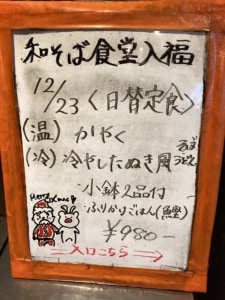 和そば食堂入福
12/23〈日替定食〉
(温) かやく
(冷) 冷やしたぬき風
そば
うどん
小鉢2品付
ふりかけごはん(鰹)
¥980-
Merry Xmas
入口こちら→